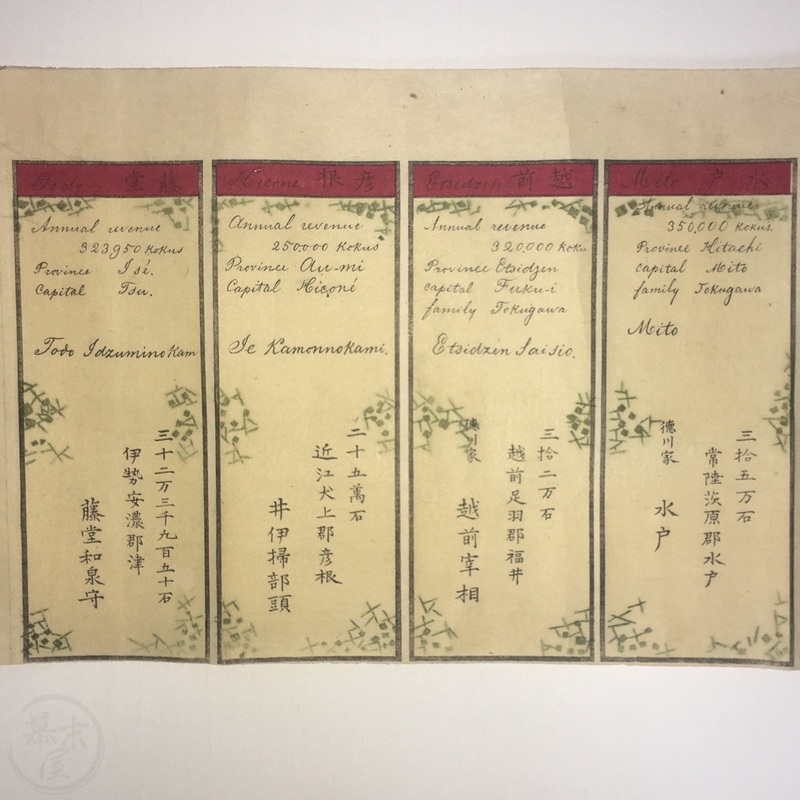 Todo 堂藤
Annual revenue
323950 Kokus
Province Isé.
Capital Tsu.
Todo Idzuminokam
三十二万三千九百五十石
伊勢安濃郡津
藤堂和泉守
Hiconé 根彦
Annual revenue
250.000 Kokus
Province Au-mi
Capital Hiconé
Ie Kamonnokami.
二十五萬石
近江犬上郡彦根
井伊掃部頭
Etsidzen 前越
Annual revenue
320.000 Koku
Province Etsidzen
capital Fuku-i
family Tokugawa
Etsidzen Saisio.
三拾二万石
越前足羽郡福井
徳川家 越前宰相
Mito 戸水
Annual revenue
350.000 Kokus.
Province Hitachi
capital Mito
family Tokugawa
Mito
三拾五万石
常陸茨原郡水戸
徳川家 水戸
幕末屋